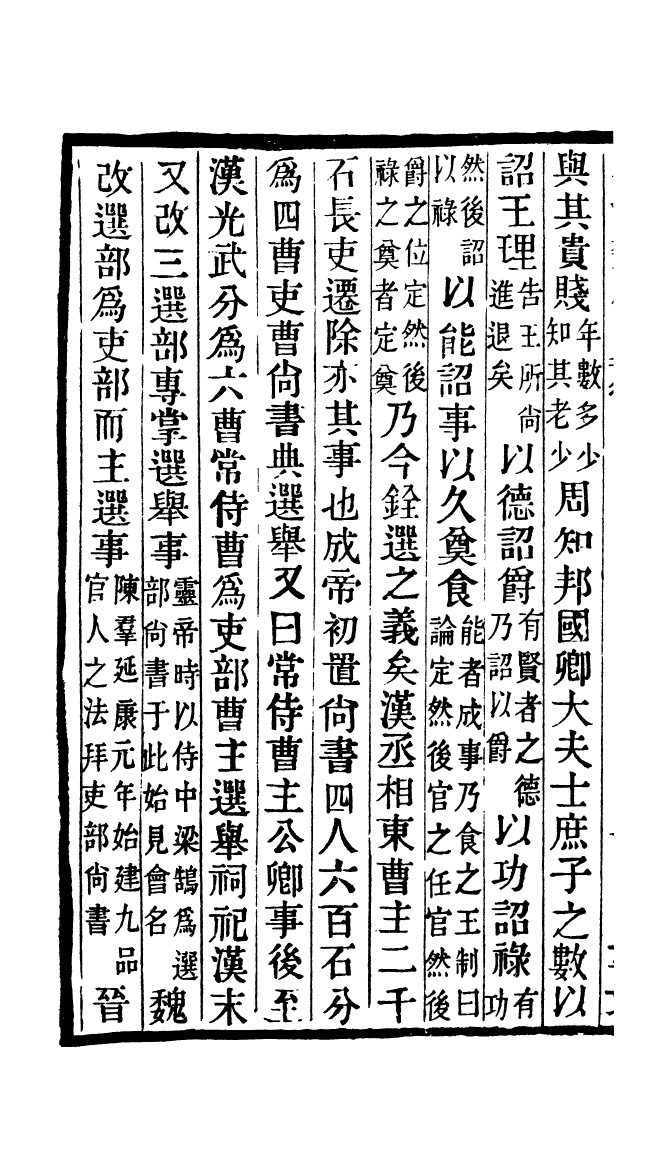 與其貴賤年數多少知其老少周知邦國卿大夫士庶子之數以
詔王理告王所尚進退矣以德詔爵有賢者之德乃詔以爵以功詔祿有功
然後詔以祿以能詔事以久奠食能者成事乃食之王制曰論定然後官之任官然後
爵之位定然後祿之奠者定奠乃今銓選之義矣漢丞相東曹主二千
石長吏遷除亦其事也成帝初置尙書四人六百石分
爲四曹吏曹尙書典選舉又曰常侍曹主公卿事後至
漢光武分爲六曹常侍曹爲吏部曹主選舉祠祀漢末
又改三選部專掌選舉事靈帝時以侍中梁鵠爲選部尙書于此始見會名魏
改選部爲吏部而主選事陳羣延康元年始建九品官人之法拜吏部尙書晉